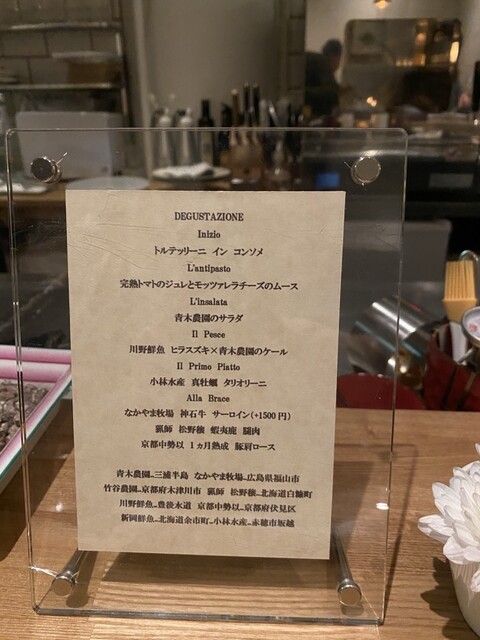 DEGUSTAZIONE
Inizio
トルテッリーニ イン コンソメ
L'antipasto
完熟トマトのジュレとモッツァレラチーズのムース
L'insalata
青木農園のサラダ
Il Pesce
川野鮮魚 ヒラスズキ×青木農園のケール
Il Primo Piatto
小林水産 真牡蠣 タリオリーニ
Alla Brace
なかやま牧場 神石牛 サーロイン(+1500円)
猟師 松野穣 蝦夷鹿 腿肉
京都中勢以 1ヵ月熟成 豚肩ロース
青木農園…三浦半島 なかやま牧場…広島県福山市
竹谷農園…京都府木津川市 猟師 松野穣…北海道白糠町
川野鮮魚…豊後水道 京都中勢以…京都府伏見区
新岡鮮魚…北海道余市町 小林水産…赤穂市坂越